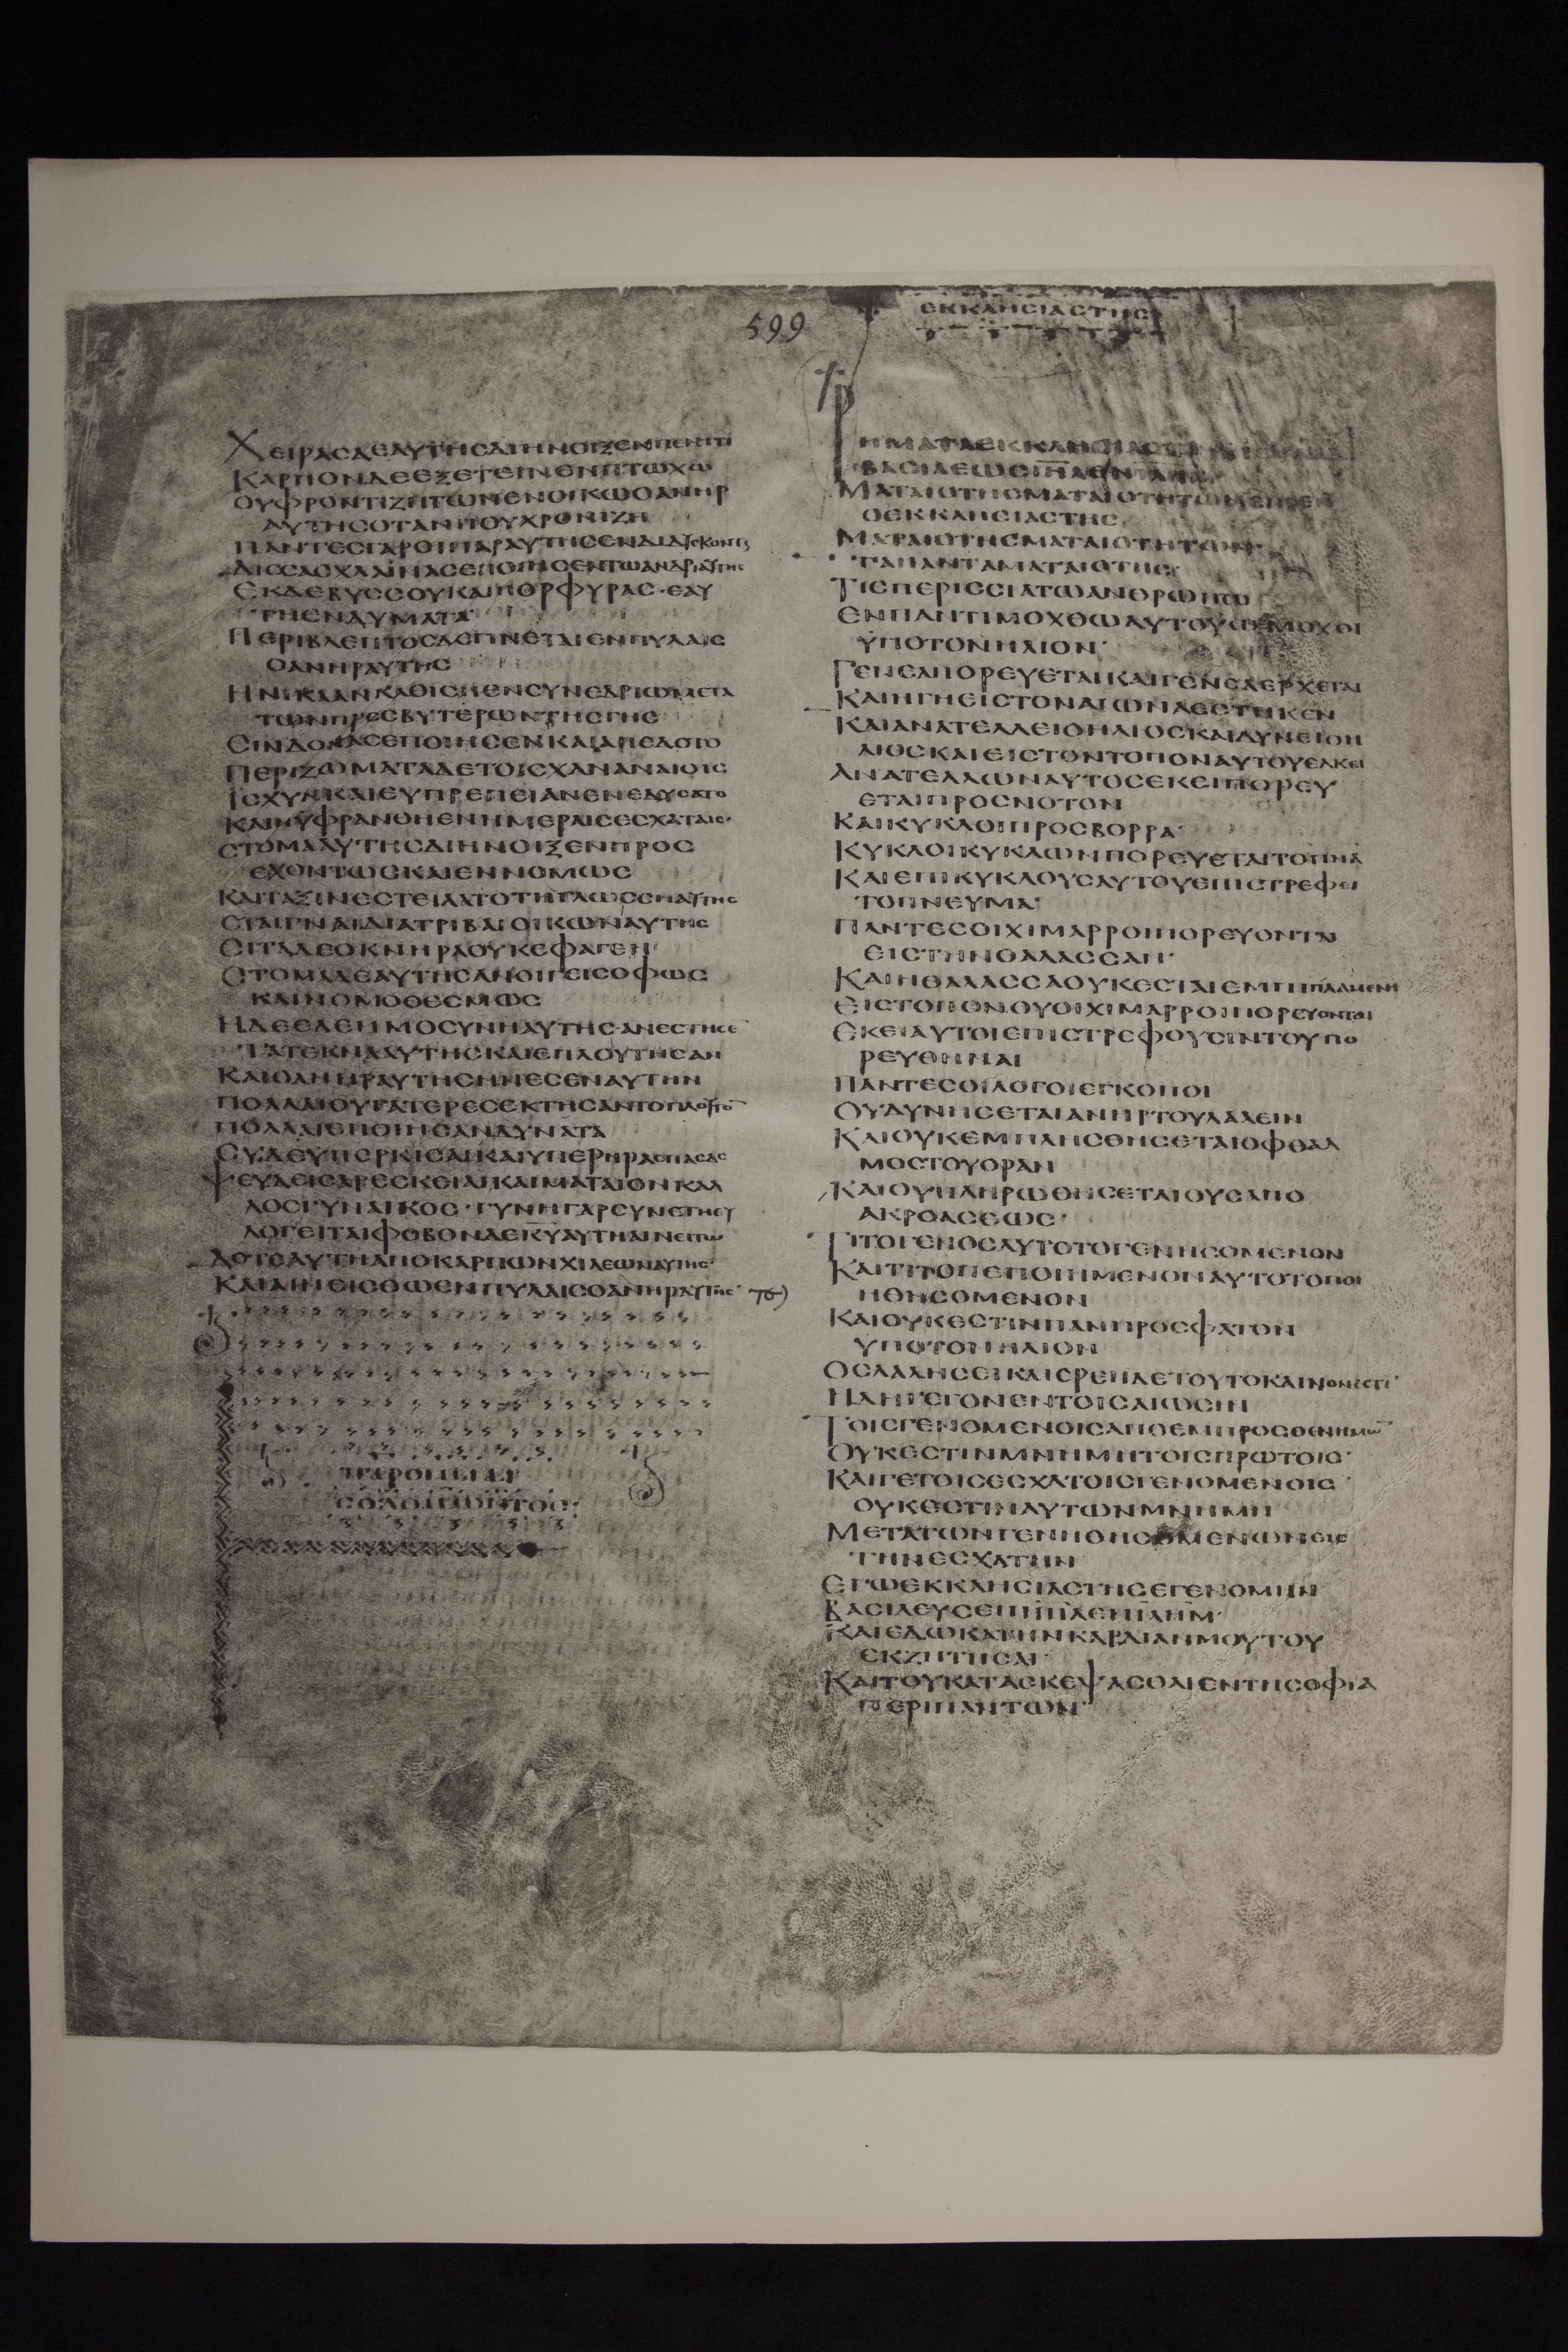 599
ΕΚΚΛΗϹΙΑϹΤΗϹ
ΧΕΙΡΑϹΔΕΑΥΤΗϹΔΙΗΝΟΙΞΕΝΠΕΝΗΤΙ
ΚΑΡΠΟΝΔΕΕΞΕΤΕΙΝΕΝΠΤΩΧΩ
ΟΥΦΡΟΝΤΙΖΙΤΩΝΕΝΟΙΚΩΟΑΝΗΡ
ΑΥΤΗϹΟΤΑΝΠΟΥΧΡΟΝΙΖΗ
ΠΑΝΤΕϹΓΑΡΟΙΠΑΡΑΥΤΗϹΕΝΔΙΔΥϹΚΟΝΤ
ΔΙϹϹΑϹΧΛΑΙΝΑϹΕΠΟΙΗϹΕΝΤΩΑΝΔΡΙΑΥΤΗϹ
ΕΚΔΕΒΥϹϹΟΥΚΑΙΠΟΡΦΥΡΑϹ·ΕΑΥ
ΤΗΕΝΔΥΜΑΤΑ
ΠΕΡΙΒΛΕΠΤΟϹΔΕΓΙΝΕΤΑΙΕΝΠΥΛΑΙϹ
ΟΑΝΗΡΑΥΤΗϹ
ΗΝΙΚΑΑΝΚΑΘΙϹΗΕΝϹΥΝΕΔΡΙΩΜΕΤΑ
ΤΩΝΠΡΕϹΒΥΤΕΡΩΝΤΗϹΓΗϹ
ϹΙΝΔΟΝΑϹΕΠΟΙΗϹΕΝΚΑΙΑΠΕΔΟΤΟ
ΠΕΡΙΖΩΜΑΤΑΔΕΤΟΙϹΧΑΝΑΝΑΙΟΙϹ
ΙϹΧΥΝΚΑΙΕΥΠΡΕΠΕΙΑΝΕΝΕΔΥϹΑΤΟ
ΚΑΙΗΥΦΡΑΝΘΗΕΝΗΜΕΡΑΙϹΕϹΧΑΤΑΙϹ·
ϹΤΟΜΑΑΥΤΗϹΔΙΗΝΟΙΞΕΝΠΡΟϹ
ΕΧΟΝΤΩϹΚΑΙΕΝΝΟΜΩϹ
ΚΑΙΤΑΞΙΝΕϹΤΕΙΛΑΤΟΤΗΓΛΩϹϹΗΑΥΤΗϹ
ϹΤΕΓΝΑΙΔΙΑΤΡΙΒΑΙΟΙΚΩΝΑΥΤΗϹ
ϹΙΤΑΔΕΟΚΝΗΡΑΟΥΚΕΦΑΓΕΝ
ϹΤΟΜΑΔΕΑΥΤΗϹΑΝΟΙΓΕΙϹΟΦΩϹ
ΚΑΙΝΟΜΟΘΕϹΜΩϹ
ΗΔΕΕΛΕΗΜΟϹΥΝΗΑΥΤΗϹ·ΑΝΕϹΤΗϹΕ
ΤΑΤΕΚΝΑΑΥΤΗϹΚΑΙΕΠΛΟΥΤΗϹΑΝ
ΚΑΙΟΑΝΗΡΑΥΤΗϹΗΝΕϹΕΝΑΥΤΗΝ
ΠΟΛΛΑΙΘΥΓΑΤΕΡΕϹΕΚΤΗϹΑΝΤΟΠΛΟΥΤΟ
ΠΟΛΛΑΙΕΠΟΙΗϹΑΝΔΥΝΑΤΑ
ϹΥΔΕΥΠΕΡΚΙϹΑΙΚΑΙΥΠΕΡΗΡΑϹΠΑϹΑϹ
ΨΕΥΔΕΙϹΑΡΕϹΚΕΙΑΙΚΑΙΜΑΤΑΙΟΝΚΑΛ
ΛΟϹΓΥΝΑΙΚΟϹ·ΓΥΝΗΓΑΡϹΥΝΕΤΗΕΥ
ΛΟΓΕΙΤΑΙΦΟΒΟΝΔΕΚΥΑΥΤΗΑΙΝΕΙΤΩ
ΔΟΤΕΑΥΤΗΑΠΟΚΑΡΠΩΝΧΙΛΕΩΝΑΥΤΗϹ
ΚΑΙΑΙΝΕΙϹΘΩΕΝΠΥΛΑΙϹΟΑΝΗΡΑΥΤΗϹ
ΠΑΡΟΙΜΙΑΙ
ϹΟΛΟΜΩΝΤΟϹ
ΡΗΜΑΤΑΕΚΚΛΗϹΙΑϹΤΟΥ
ΒΑϹΙΛΕΩϹΙΗΛΕΝ
ΜΑΤΑΙΟΤΗϹΜΑΤΑΙΟΤΗΤΩΝΕΙΠΕΝ
ΟΕΚΚΛΗϹΙΑϹΤΗϹ
ΜΑΤΑΙΟΤΗϹΜΑΤΑΙΟΤΗΤΩΝ
ΤΑΠΑΝΤΑΜΑΤΑΙΟΤΗϹ
ΤΙϹΠΕΡΙϹϹΙΑΤΩΑΝΘΡΩΠΩ
ΕΝΠΑΝΤΙΜΟΧΘΩΑΥΤΟΥΩΜΟΧΘΙ
ΥΠΟΤΟΝΗΛΙΟΝ·
ΓΕΝΕΑΠΟΡΕΥΕΤΑΙΚΑΙΓΕΝΕΑΕΡΧΕΤΑΙ
ΚΑΙΗΓΗΕΙϹΤΟΝΑΙΩΝΑΕϹΤΗΚΕΝ
ΚΑΙΑΝΑΤΕΛΛΕΙΟΗΛΙΟϹΚΑΙΔΥΝΕΙΟΗ
ΛΙΟϹΚΑΙΕΙϹΤΟΝΤΟΠΟΝΑΥΤΟΥΕΛΚΕΙ
ΑΝΑΤΕΛΛΩΝΑΥΤΟϹΕΚΕΙΠΟΡΕΥ
ΕΤΑΙΠΡΟϹΝΟΤΟΝ
ΚΑΙΚΥΚΛΟΙΠΡΟϹΒΟΡΡΑ·
ΚΥΚΛΟΙΚΥΚΛΩΝΠΟΡΕΥΕΤΑΙΤΟΠΝΑ
ΚΑΙΕΠΙΚΥΚΛΟΥϹΑΥΤΟΥΕΠΙϹΤΡΕΦΕΙ
ΤΟΠΝΕΥΜΑ·
ΠΑΝΤΕϹΟΙΧΙΜΑΡΡΟΙΠΟΡΕΥΟΝΤΑΙ
ΕΙϹΤΗΝΘΑΛΑϹϹΑΝ·
ΚΑΙΗΘΑΛΑϹϹΑΟΥΚΕϹΤΑΙΕΜΠΙΠΛΑΜΕΝΗ
ΕΙϹΤΟΠΟΝΟΥΟΙΧΙΜΑΡΡΟΙΠΟΡΕΥΟΝΤΑΙ
ΕΚΕΙΑΥΤΟΙΕΠΙϹΤΡΕΦΟΥϹΙΝΤΟΥΠΟ
ΡΕΥΘΗΝΑΙ
ΠΑΝΤΕϹΟΙΛΟΓΟΙΕΓΚΟΠΟΙ
ΟΥΔΥΝΗϹΕΤΑΙΑΝΗΡΤΟΥΛΑΛΕΙΝ
ΚΑΙΟΥΚΕΜΠΛΗϹΘΗϹΕΤΑΙΟΦΘΑΛ
ΜΟϹΤΟΥΟΡΑΝ
ΚΑΙΟΥΠΛΗΡΩΘΗϹΕΤΑΙΟΥϹΑΠΟ
ΑΚΡΟΑϹΕΩϹ·
ΤΙΤΟΓΕΓΟΝΟϹΑΥΤΟΤΟΓΕΝΗϹΟΜΕΝΟΝ
ΚΑΙΤΙΤΟΠΕΠΟΙΗΜΕΝΟΝΑΥΤΟΤΟΠΟΙ
ΗΘΗϹΟΜΕΝΟΝ
ΚΑΙΟΥΚΕϹΤΙΝΠΑΝΠΡΟϹΦΑΤΟΝ
ΥΠΟΤΟΝΗΛΙΟΝ
ΟϹΛΑΛΗϹΕΙΚΑΙΕΡΕΙΙΔΕΤΟΥΤΟΚΑΙΝΟΝΕϹΤΙ
ΗΔΗΓΕΓΟΝΕΝΤΟΙϹΑΙΩϹΙΝ
ΤΟΙϹΓΕΝΟΜΕΝΟΙϹΑΠΟΕΜΠΡΟϹΘΕΝΗΜΩ
ΟΥΚΕϹΤΙΝΜΝΗΜΗΤΟΙϹΠΡΩΤΟΙϹ·
ΚΑΙΓΕΤΟΙϹΕϹΧΑΤΟΙϹΓΕΝΟΜΕΝΟΙϹ
ΟΥΚΕϹΤΙΝΑΥΤΩΝΜΝΗΜΗ
ΜΕΤΑΤΩΝΓΕΝΗΘΗϹΟΜΕΝΩΝΕΙϹ
ΤΗΝΕϹΧΑΤΗΝ
ΕΓΩΕΚΚΛΗϹΙΑϹΤΗϹΕΓΕΝΟΜΗΝ
ΒΑϹΙΛΕΥϹΕΠΙΙΗΛΕΝΙΛΗΜ·
ΚΑΙΕΔΩΚΑΤΗΝΚΑΡΔΙΑΝΜΟΥΤΟΥ
ΕΚΖΗΤΗϹΑΙ
ΚΑΙΤΟΥΚΑΤΑϹΚΕΨΑϹΘΑΙΕΝΤΗϹΟΦΙΑ
ΠΕΡΙΠΑΝΤΩΝ